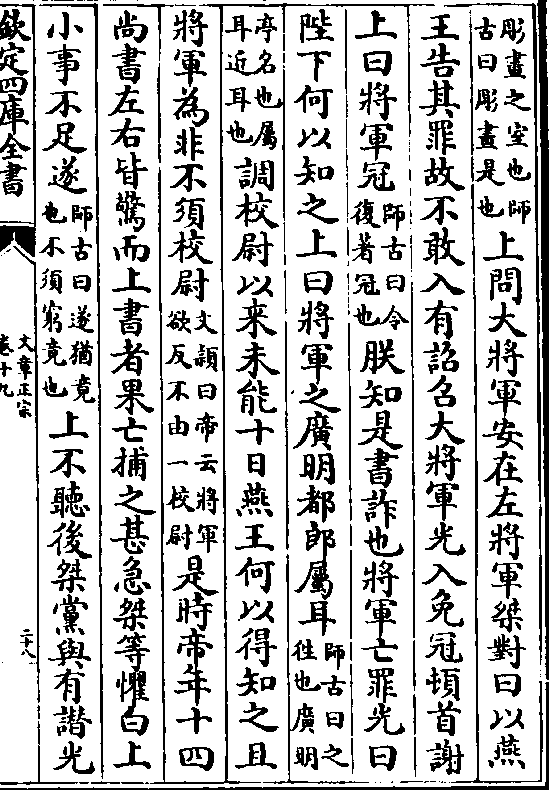 彫畫之室也師
古曰彫畫是也
上問大將軍安在左將軍桀對曰以燕
王告其罪故不敢入有詔召大將軍光入免冠頓首謝
上曰將軍冠
師古曰令
復著冠也
朕知是書詐也將軍亡罪光曰
陛下何以知之上曰將軍之廣明都郎屬耳
師古曰之
徃也廣明
亭名也屬
耳近耳也
調校尉以来未能十日燕王何以得知之且
將軍為非不須校尉
文頴曰帝云將軍
欲反不由一校尉
是時帝年十四
尚書左右皆驚而上書者果亡捕之甚急桀等懼白上
小事不足遂
師古曰遂猶竟
也不須窮竟也
上不聽後桀黨與有譖光
欽定四庫全書
文章正宗
卷十九
二十八